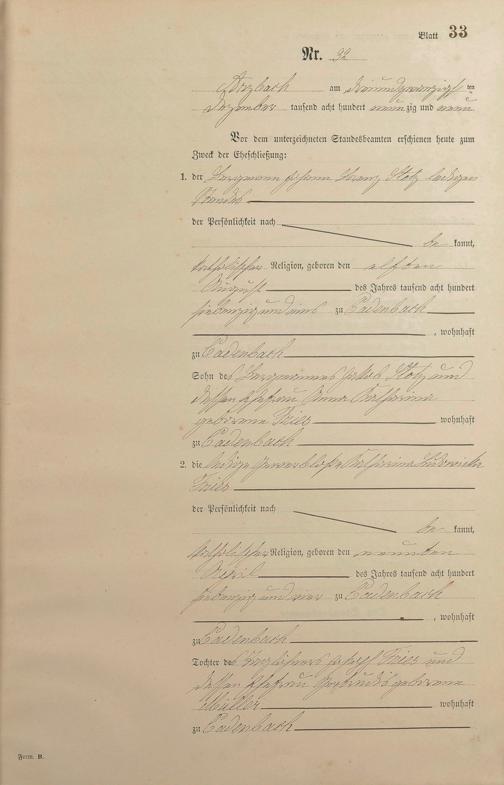 Blatt 33
Nr. 32
Arzbach am dreiundzwanzigsten
Dezember tausend acht hundert neunzig und neun
Vor dem unterzeichneten Standesbeamten erschienen heute zum
Zweck der Eheschließung:
1. der Bergmann Johann Franz Stotz ledigen
Standes
der Persönlichkeit nach
be kannt,
katholischer Religion, geboren den elften
August des Jahres tausend acht hundert
siebenzig und eins zu Cadenbach
, wohnhaft
zu Cadenbach
Sohn des Bergmannes Jakob Stotz und
dessen Ehefrau Anna Katharina
geborene wohnhaft
zu Cadenbach
2. die ledige gewerblose Katharina
der Persönlichkeit nach
be kannt,
katholischer Religion, geboren den neunten
April des Jahres tausend acht hundert
siebenzig und vier zu Cadenbach
, wohnhaft
zu Cadenbach
Tochter des Joseph und
dessen Ehefrau Gertrude geborene
Müller wohnhaft
zu Cadenbach
Form. B.